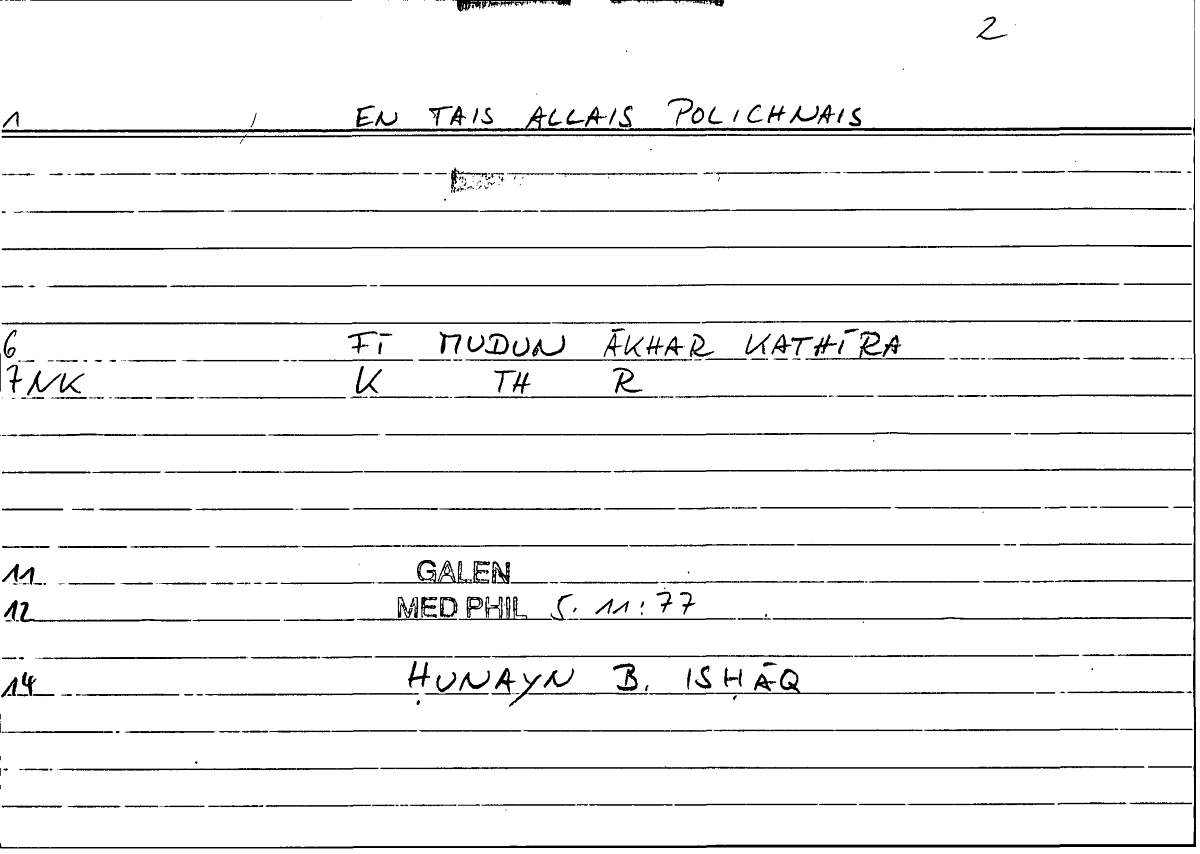 2
1 / EN TAIS ALLAIS POLICHNAIS
6 FĪ MUDUN ĀKHAR KATHĪRA
7NK K TH R
11 GALEN
12 MED PHIL 5. 11:77
14 ḤUNAYN B. ISḤĀQ